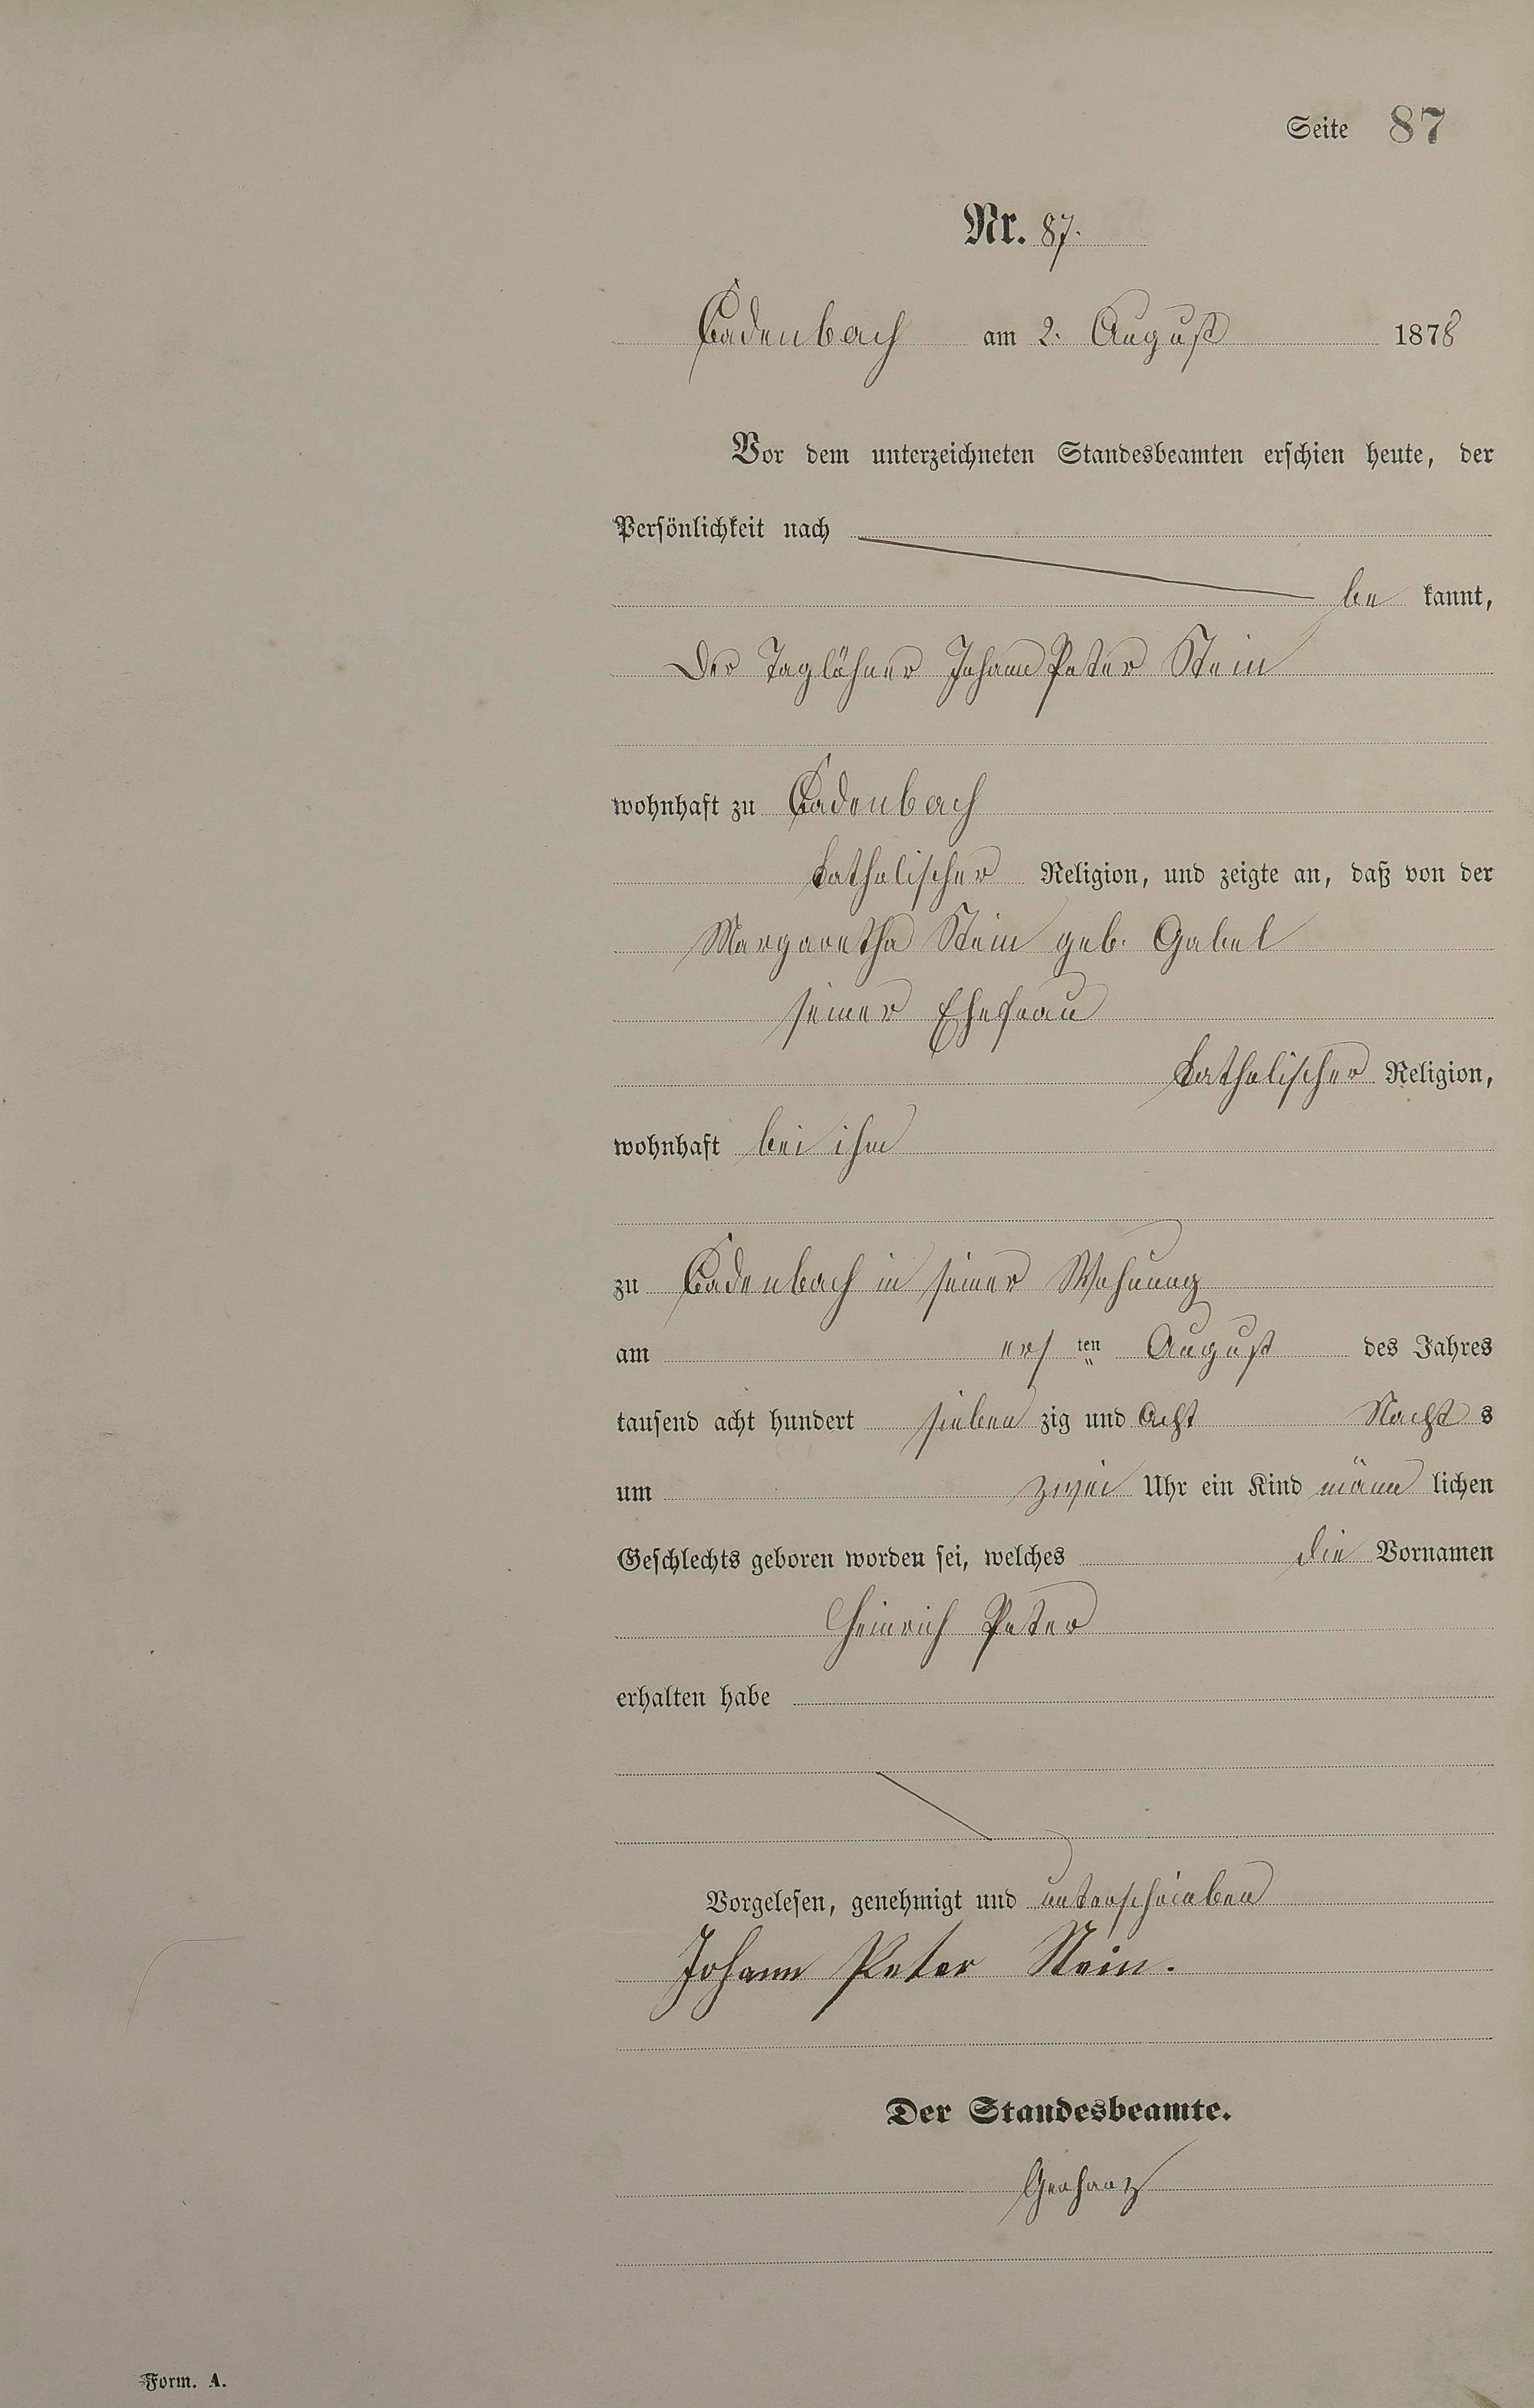 Seite 87
Nr. 87.
Cadenbach am 2. August 1878
Vor dem unterzeichneten Standesbeamten erschien heute, der
Persönlichkeit nach
be kannt,
Der Taglöhner Johann Peter Stein
wohnhaft zu Cadenbach
katholischer Religion, und zeigte an, daß von der
Margaretha Stein geb. Gabel
seiner Ehefrau
katholischer Religion,
wohnhaft bei ihm
zu Cadenbach in seiner Wohnung
am ers ten August des Jahres
tausend acht hundert sieben zig und Acht Nacht s
um zwei Uhr ein Kind männ lichen
Geschlechts geboren worden sei, welches die Vornamen
Heinrich Peter
erhalten habe
Vorgelesen, genehmigt und unterschrieben
Johann Peter Stein.
Der Standesbeamte.
Gerharz
Form. A.